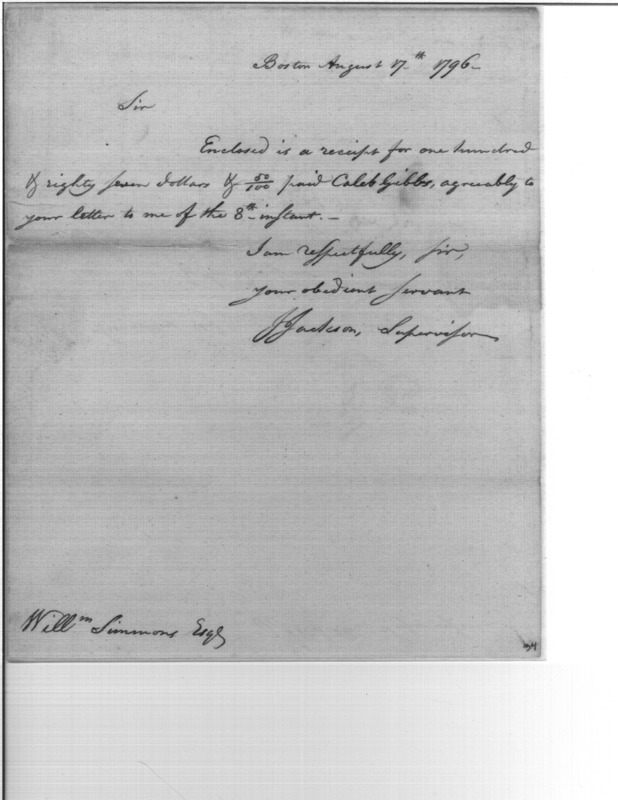 Boston August 17th 1796-
Sir
Enclosed is a receipt for one hundred
& eighty seven dollars & 50/100 paid Caleb Gibbs, agreeably to
your letter to me of the 8th instant. -
I am respectfully, sir,
your obedient servant
J Jackson, Supervisor
Willm Simmons Esqr